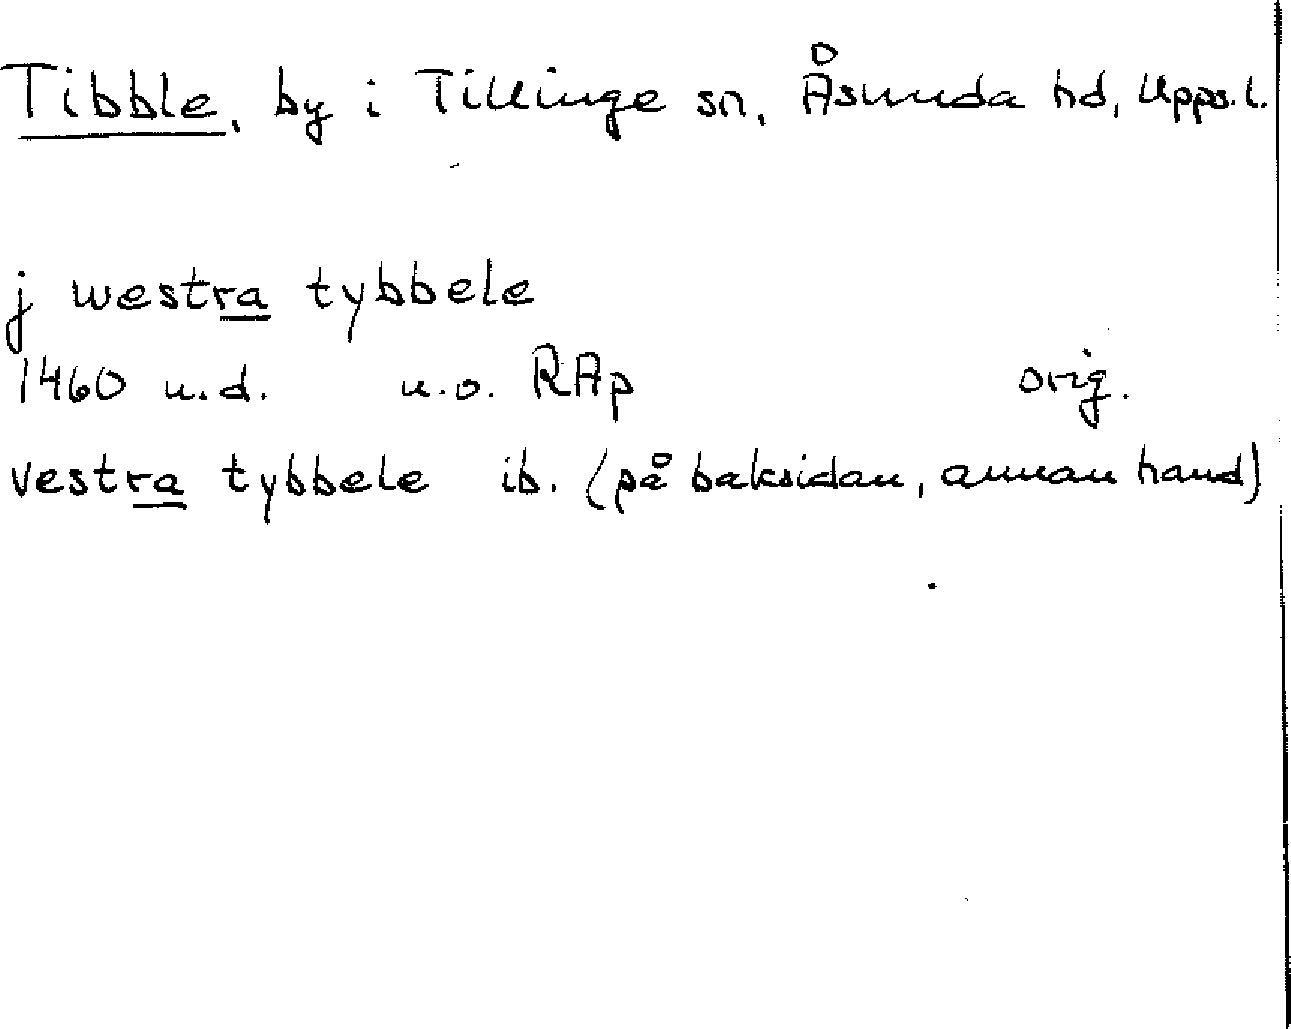 Tibble, by i Tillinge sn, Åsunda hd, Upps.l.
j westra tybbele
1460 u.d. u.o. RAp orig.
vestra tybbele ib. (på baksidan, annan hand)